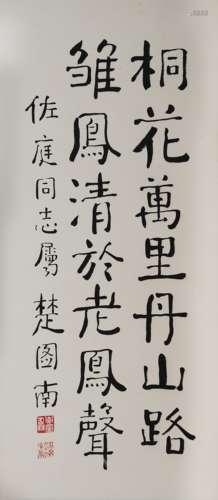 桐花萬里丹山路
雛鳳清於老鳳聲
佐庭同志屬 楚圖南